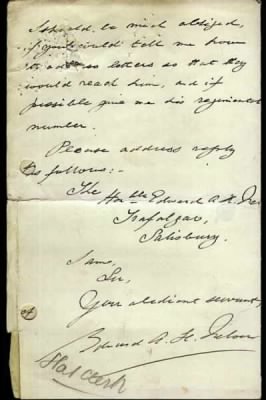 I should be much obliged,
if you could tell me how
to address letters so that they
would reach him, and if
possible give me his regimental
number.
Please address reply
as follows:-
The Honble Edward A. H.
Trafalgar,
Salisbury.
I am,
Sir,
Your obedient servant,
of
Edward A. H. Nelson